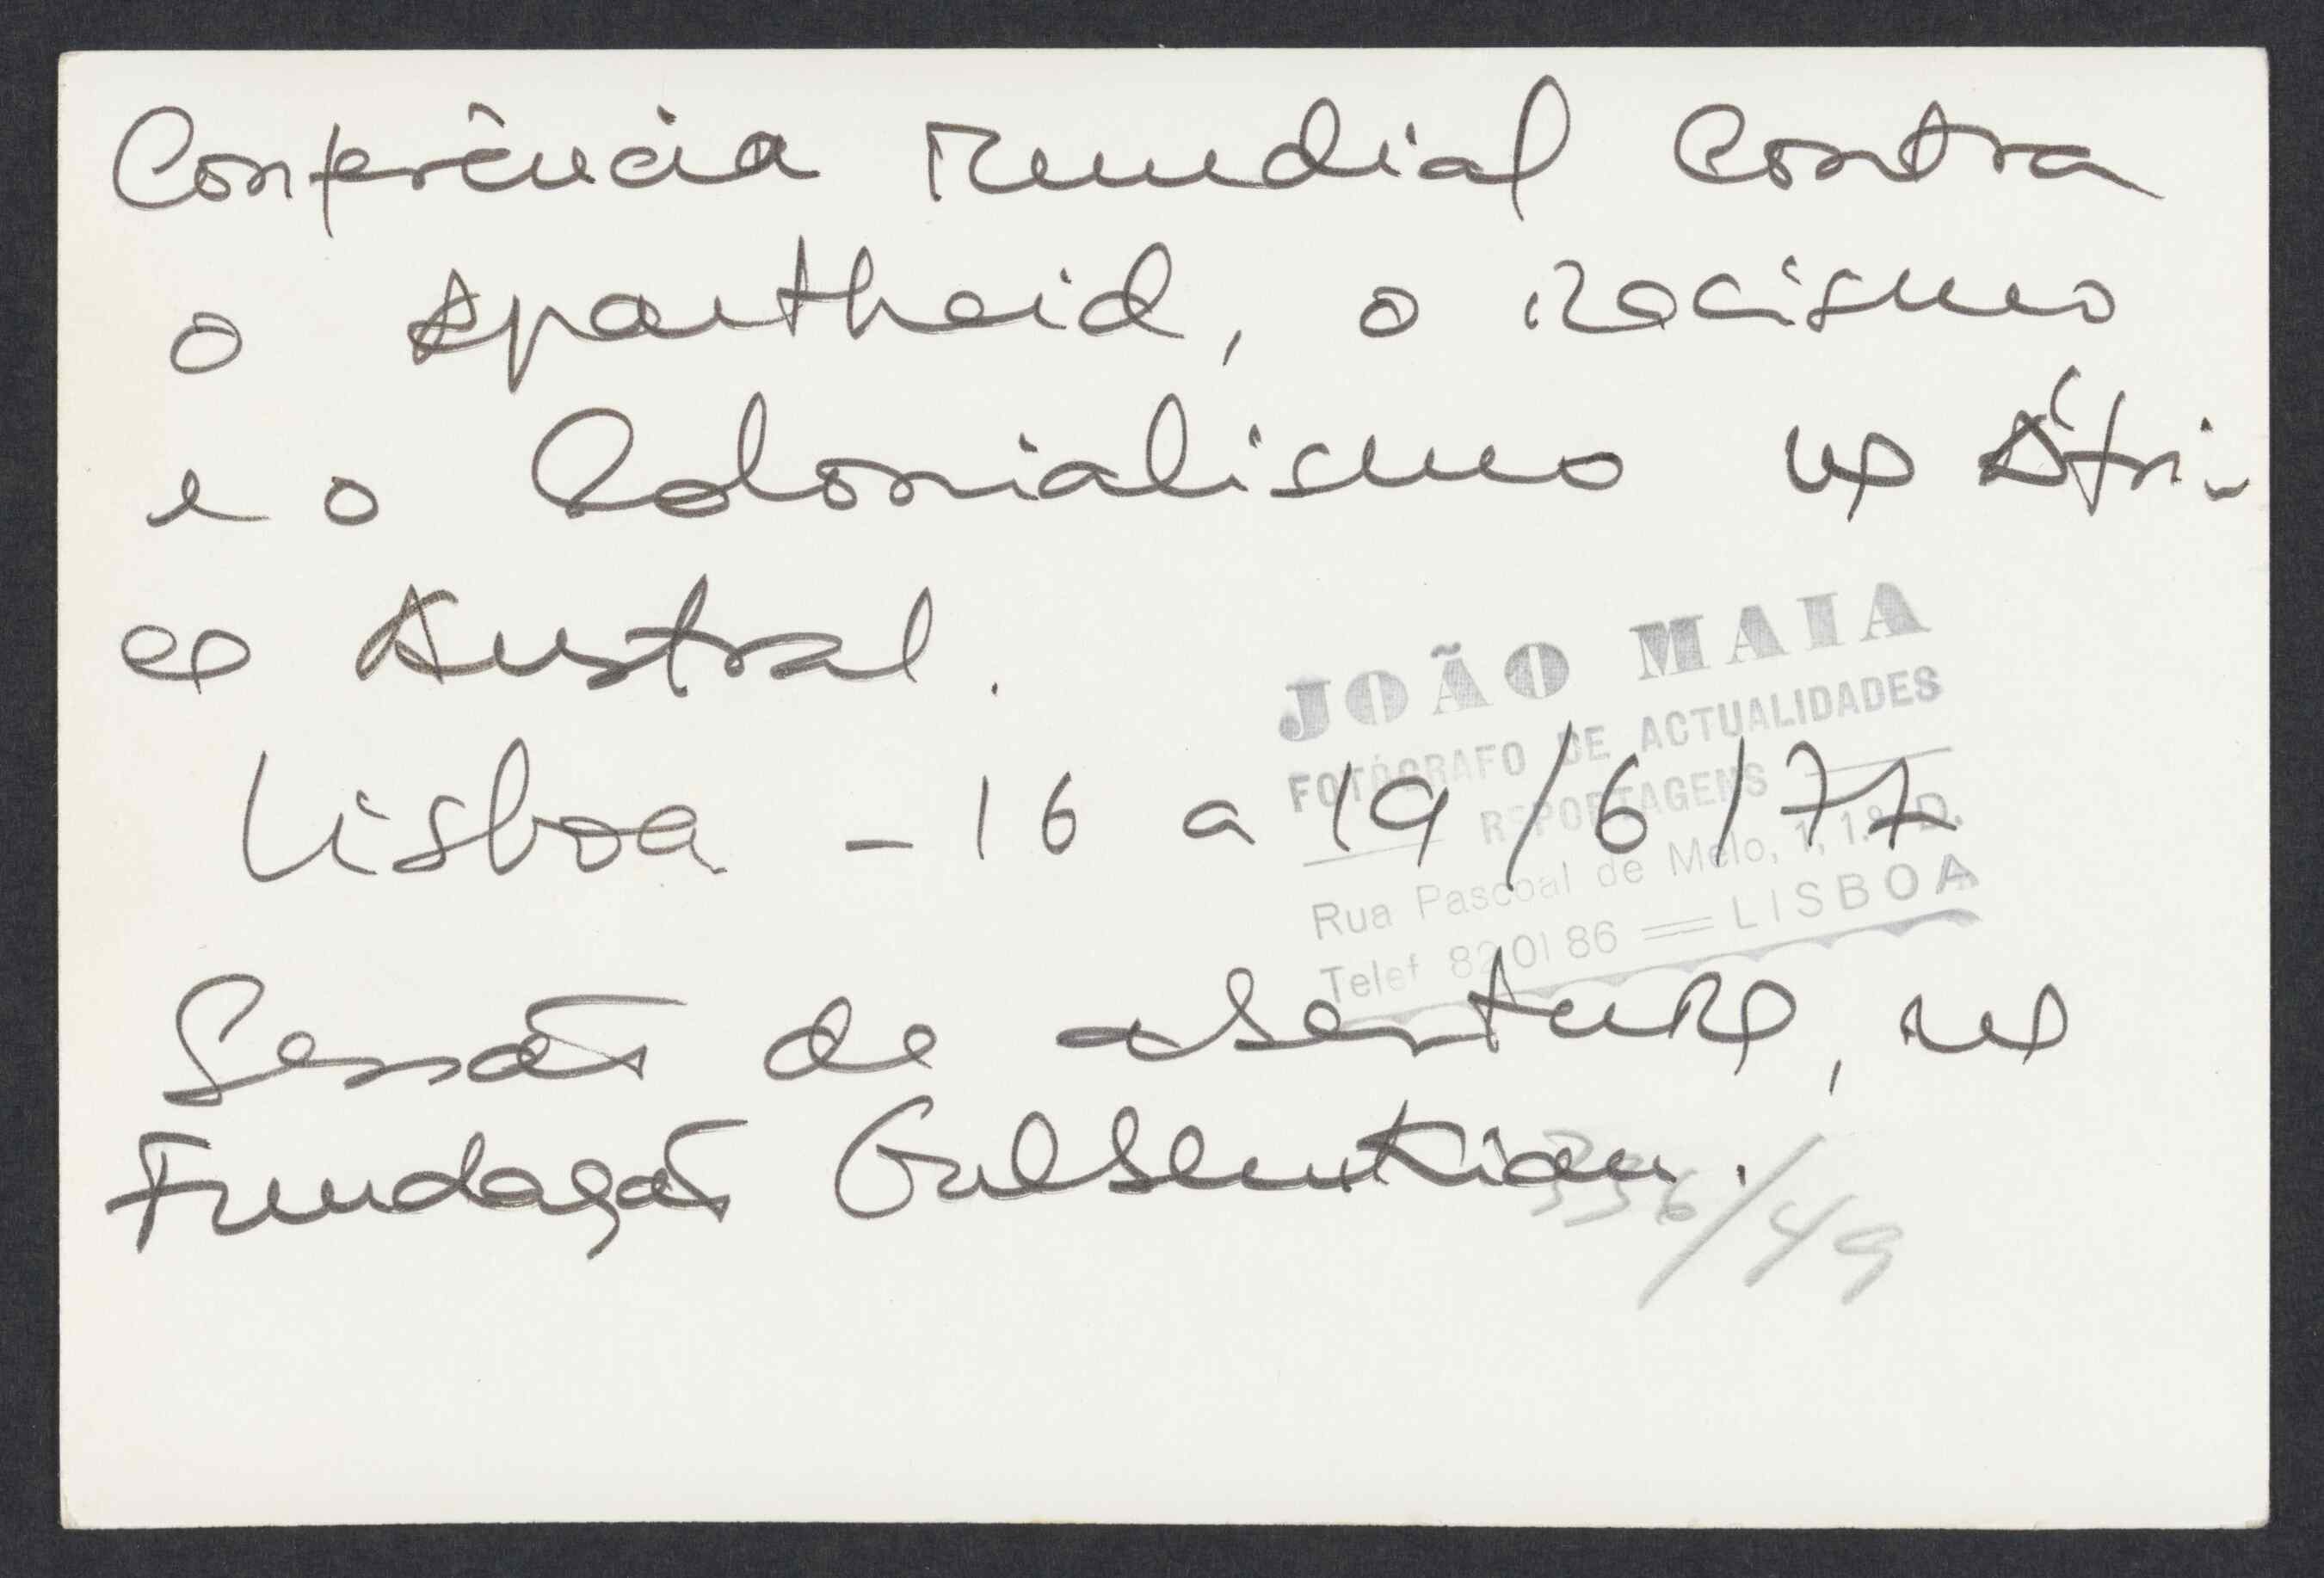 Conferência Mundial Contra
o Apartheid, o Racismo
e o Colonialismo na Áfri-
ca Austral.
JOÃO MAIA
FOTÓGRAFO DE ACTUALIDADES
REPORTAGENS
Lisboa - 16 a 19/6/77
Rua Pascoal de Melo, 1, 1.º D.
Telef 820186 = LISBOA
Sessão de abertura, na
Fundação Gulbenkian.
336/49